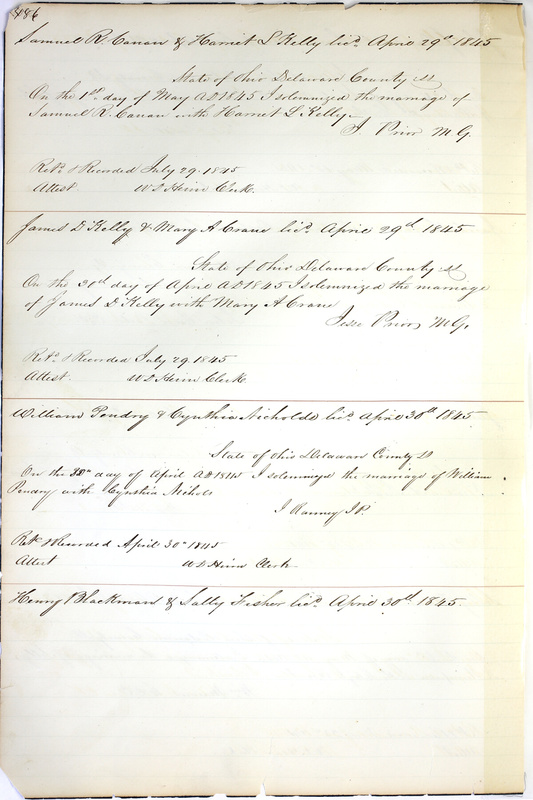 486
Samuel R. Canan & Harriet L Kelly licd April 29th 1845
State of Ohio Delaware County ss
On the 1st day of May AD 1845 I solemnized the marriage of
Samuel R. Canan with Harriet L Kelly
J. Prior M G.
Retd & Recorded July 29. 1845
Attest W D Heim Clerk.
James D Kelly & Mary A Crane licd April 29th 1845
State of Ohio Delaware County ss
On the 30th day of April AD 1845 I solemnized the marriage
of James D Kelly with Mary A Crane
Jesse Prior M G.
Retd & Recorded July 29. 1845
Attest. W D Heim Clerk
William Pendry & Cynthia Nicholds licd April 30th 1845
State of Ohio Delaware County ss
On the 30th day of April AD 1845 I solemnized the marriage of William
Pendry with Cynthia Nichols
J Ranney J P.
Retd & Recorded April 30th 1845
Attest W D Heim Clerk
Henry Blackman & Sally Fisher licd April 30th 1845.